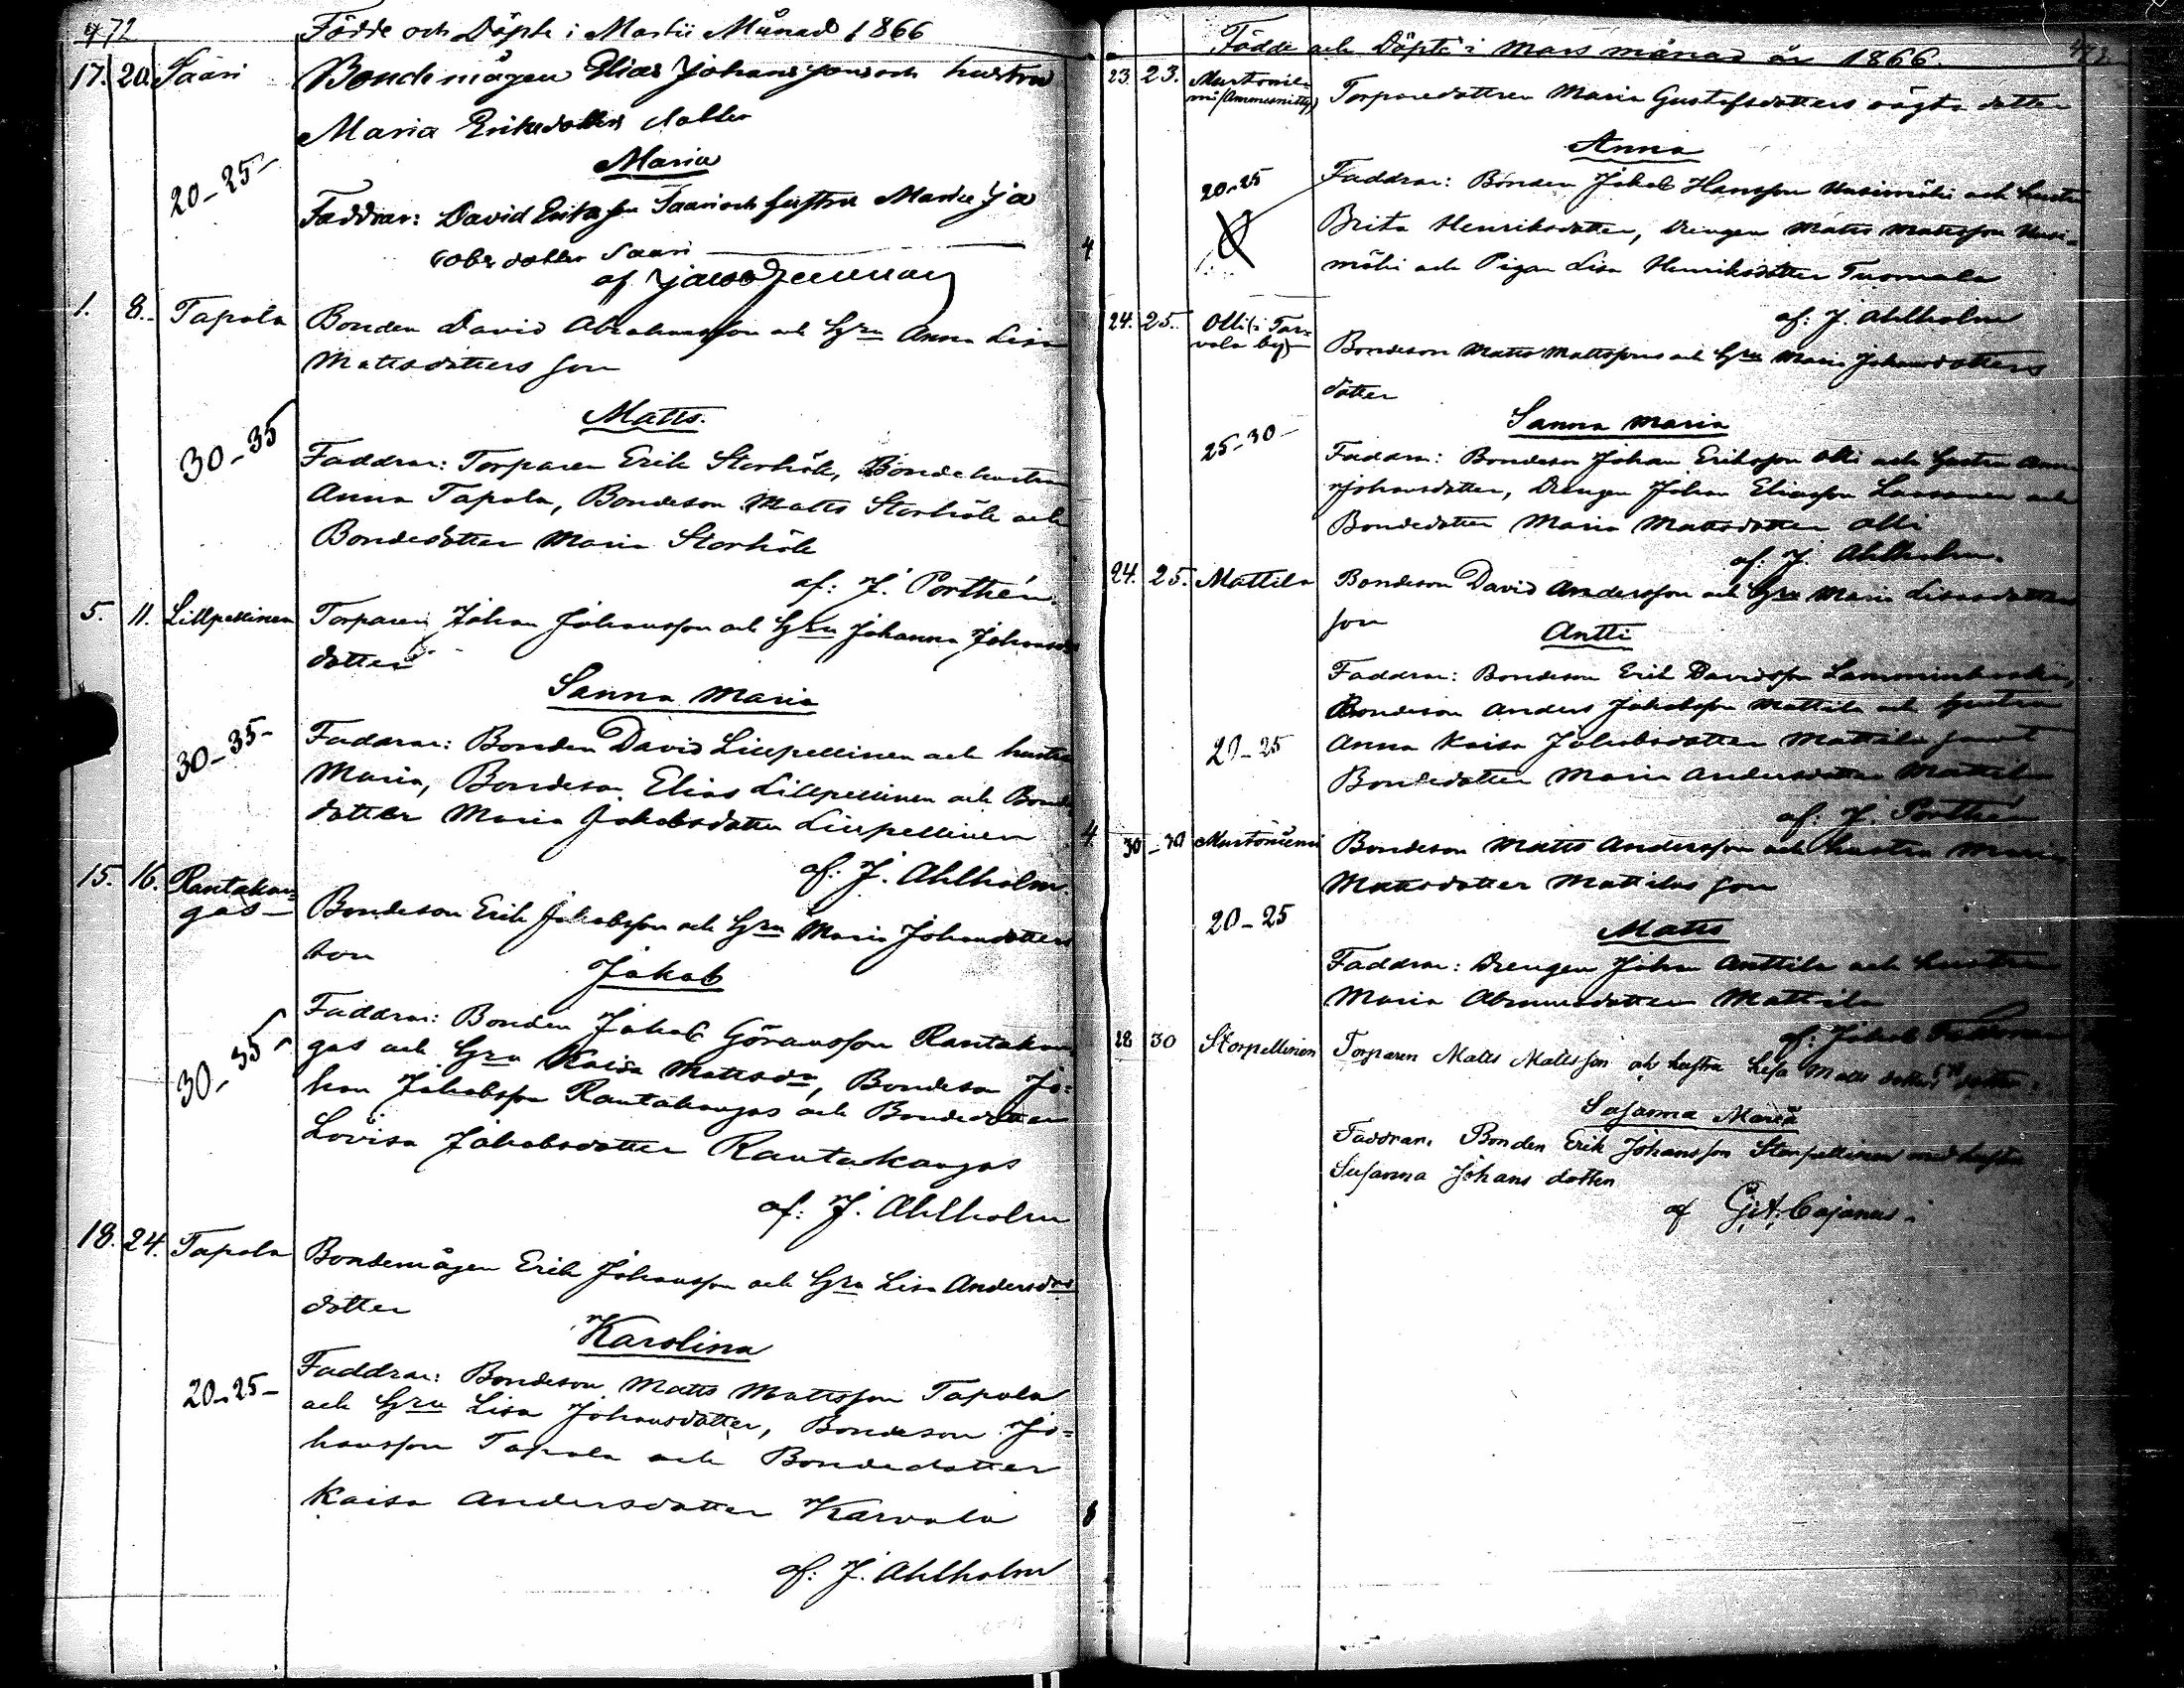 472
Födde och Döpte i Martii Månad 1866
17. 20. Saari Bondemågen Elias Johanssons och hustru
Maria Eriksdotters dotter
Maria
20-25-
Faddrar: David Eriksson Saari och hustru Maria Ja
cobsdotter Saari
af
1. 8. Tapola Bonden David Abrahamsson och Hru Anna Lisa
Mattsdotters son
Matts.
30-35
Faddrar: Torparen Erik Storhök, Bondehustru
Anna Tapola, Bondeson Matts Storhök och
Bondedotter Maria Storhök
af: J. Porthén.
5. 11. Lillpellinen Torparen Johan Johansson och Hru Johanna Johansds
dotter
Sanna Maria
30-35-
Faddrar: Bonden David Lillpellinen och hustru
Maria, Bondeson Elias Lillpellinen och Bonde
dotter Maria Jakobsdotter Lillpellinen
af: J. Ahlholm.
15. 16. Rantakan-
gas Bondeson Erik Jakobsson och Hru Maria Johansdotters
son
Jakob
30-35-
Faddrar: Bonden Jakob Göransson Rantakan
gas och Hru Kaisa Mattsdr, Bondeson Jo=
han Jakobsson Rantakangas och Bondedotter
Lovisa Jakobsdotter Rantakangas
af: J. Ahlholm
18. 24. Tapola Bondemågen Erik Johansson och Hru Lisa Andersdrs
dotter
Karolina
20-25-
Faddrar: Bondeson Matts Mattsson Tapola
och Hru Lisa Johansdotter, Bondeson Jo=
hansson Tapola och Bondedotter
Kaisa Andersdotter Karvala
af: J. Ahlholm
Födde och Döpte i Mars månad år 1866. 473.
23. 23. Mustonie-
mi Torparedottren Maria Gustafsdotters oägta dotter
Anna
20-25
Faddrar: Bonden Jakob Hansson Uusimäki och hustru
Brita Henriksdotter, Drengen Matts Mattsson Uusi-
mäki och Pigan Lisa Henriksdotter Tuomala
af: J. Ahlholm
24. 25. Olli (i Tar-
vola by) Bondeson Matts Mattssons och Hru Maria Johansdotters
dotter
Sanna Maria
25-30-
Faddrar: Bondeson Johan Eriksson Olli och hustru Anna
Johansdotter, Drengen Johan Eliasson Lassanen och
Bondedotter Maria Mattsdotter Olli
af: J. Ahlholm.
24. 25. Mattila Bondeson David Andersson och Hru Maria
son
Antti
Faddrar: Bondeson Erik Davidsson Lamminkoski,
Bondeson Anders Jakobsson Mattila och hustru
20-25 Anna Kaisa Jakobsdotter Mattila samt
Bondedotter Maria Andersdotter Mattila
af: J. Porthén
30 - 30 Mustoniemi Bondeson Matts Andersson och hustru Maria
Mattsdotter Mattilas son
20-25 Matts
Faddrar: Drengen Johan Anttila och hustru
Maria Abramsdotter Mattila
af: Jakob
28 30 Storpellinen Torparen Matts Mattsson och hustru Lisa Matts dotters dotter
Susanna Maria
Faddrar: Bonden Erik Johansson Storpellinen med hustru
Susanna Johans dotter
af G.A. Cajanus.